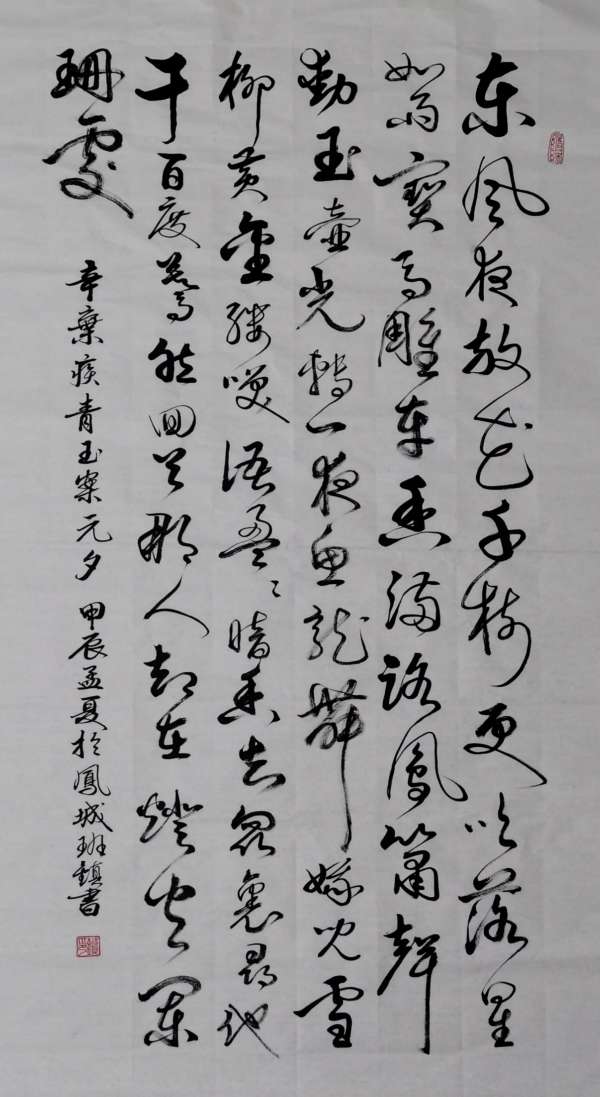 东风夜放花千树更吹落星
如雨寶马雕车香满路鳳箫聲
動玉壶光转一夜鱼龙舞蛾儿雪
柳黄金缕咲语盈〻暗香去众裏尋他
千百度蓦然回首那人却在燈火阑
珊處
辛棄疾青玉案元夕 甲辰孟夏於鳳城班镇書